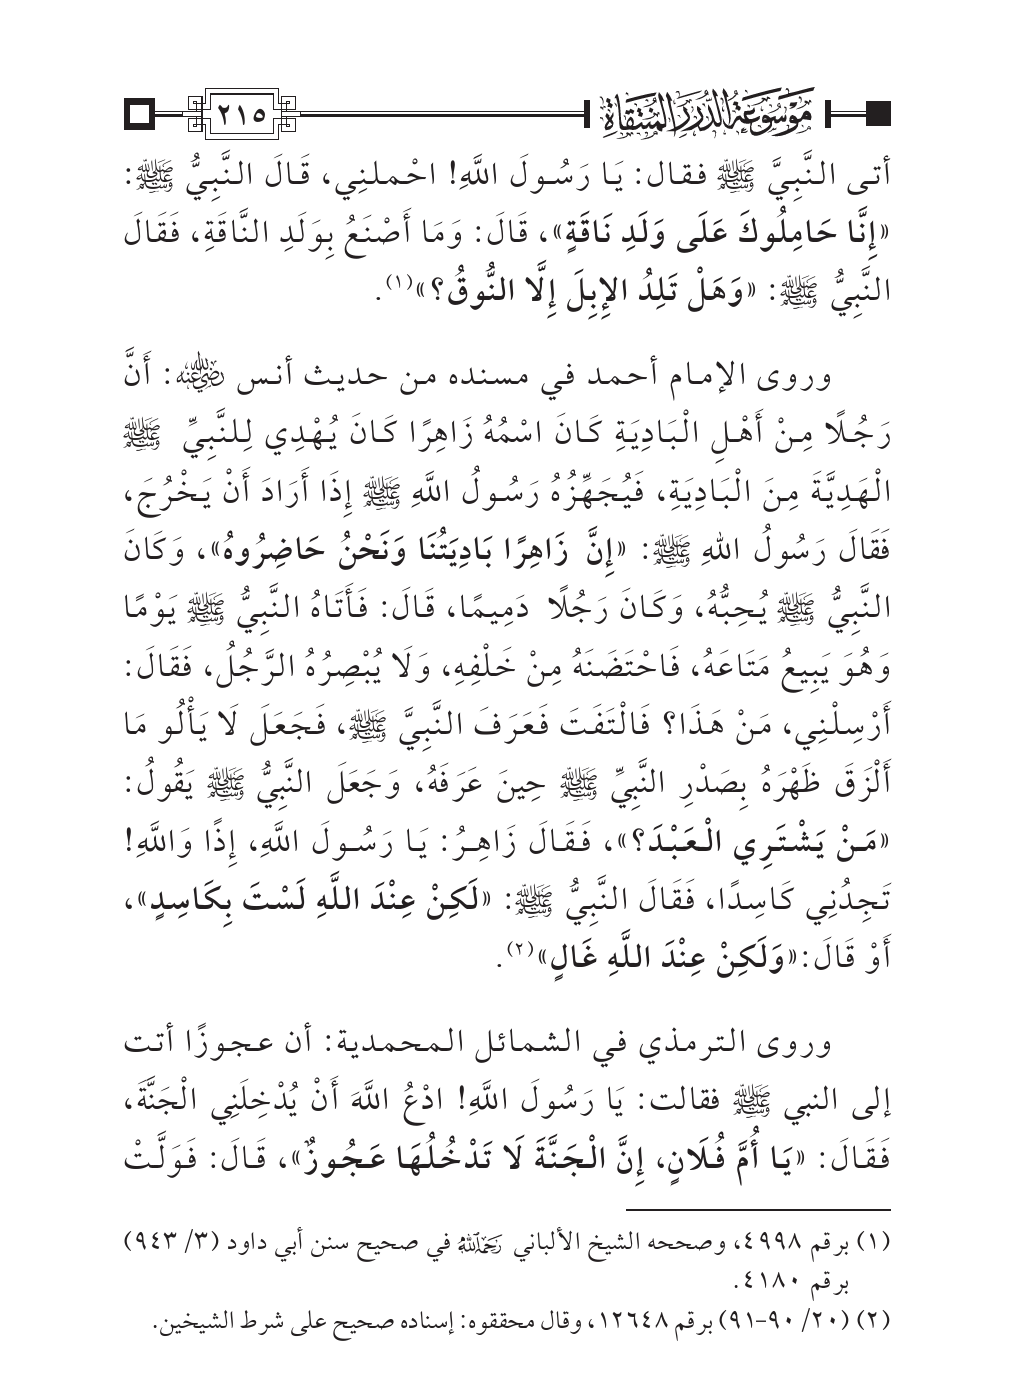 موسوعة الدرر المنتقاة
٢١٥
أتى النَّبِيَّ ﷺ فقال: يَا رَسُولَ اللَّهِ! احْملنِي، قَالَ النَّبِيُّ ﷺ:
«إِنَّا حَامِلُوكَ عَلَى وَلَدِ نَاقَةٍ»، قَالَ: وَمَا أَصْنَعُ بِوَلَدِ النَّاقَةِ، فَقَالَ
النَّبِيُّ ﷺ: «وَهَلْ تَلِدُ الإِبِلَ إِلَّا النُّوقُ؟»(١).
وروى الإمام أحمد في مسنده من حديث أنس رضي الله عنه: أَنَّ
رَجُلًا مِنْ أَهْلِ الْبَادِيَةِ كَانَ اسْمُهُ زَاهِرًا كَانَ يُهْدِي لِلنَّبِيِّ ﷺ
الْهَدِيَّةَ مِنَ الْبَادِيَةِ، فَيُجَهِّزُهُ رَسُولُ اللَّهِ ﷺ إِذَا أَرَادَ أَنْ يَخْرُجَ،
فَقَالَ رَسُولُ اللهِ ﷺ: «إِنَّ زَاهِرًا بَادِيَتُنَا وَنَحْنُ حَاضِرُوهُ»، وَكَانَ
النَّبِيُّ ﷺ يُحِبُّهُ، وَكَانَ رَجُلًا دَمِيمًا، قَالَ: فَأَتَاهُ النَّبِيُّ ﷺ يَوْمًا
وَهُوَ يَبِيعُ مَتَاعَهُ، فَاحْتَضَنَهُ مِنْ خَلْفِهِ، وَلَا يُبْصِرُهُ الرَّجُلُ، فَقَالَ:
أَرْسِلْنِي، مَنْ هَذَا؟ فَالْتَفَتَ فَعَرَفَ النَّبِيَّ ﷺ، فَجَعَلَ لَا يَأْلُو مَا
أَلْزَقَ ظَهْرَهُ بِصَدْرِ النَّبِيِّ ﷺ حِينَ عَرَفَهُ، وَجَعَلَ النَّبِيُّ ﷺ يَقُولُ:
«مَنْ يَشْتَرِي الْعَبْدَ؟»، فَقَالَ زَاهِرُ: يَا رَسُولَ اللَّهِ، إِذًا وَاللَّهِ!
تَجِدُنِي كَاسِدًا، فَقَالَ النَّبِيُّ ﷺ: «لَكِنْ عِنْدَ اللَّهِ لَسْتَ بِكَاسِدٍ»،
أَوْ قَالَ:«وَلَكِنْ عِنْدَ اللَّهِ غَالٍ»(٢).
وروى الترمذي في الشمائل المحمدية: أن عجوزًا أتت
إلى النبي ﷺ فقالت: يَا رَسُولَ اللَّهِ! ادْعُ اللَّهَ أَنْ يُدْخِلَنِي الْجَنَّةَ،
فَقَالَ: «يَا أُمَّ فُلَانٍ، إِنَّ الْجَنَّةَ لَا تَدْخُلُهَا عَجُوزٌ»، قَالَ: فَوَلَّتْ
(١) برقم ٤٩٩٨، وصححه الشيخ الألباني رحمه الله في صحيح سنن أبي داود (٣/ ٩٤٣)
برقم ٤١٨٠.
(٢) (٢٠/ ٩٠-٩١) برقم ١٢٦٤٨، وقال محققوه: إسناده صحيح على شرط الشيخين.